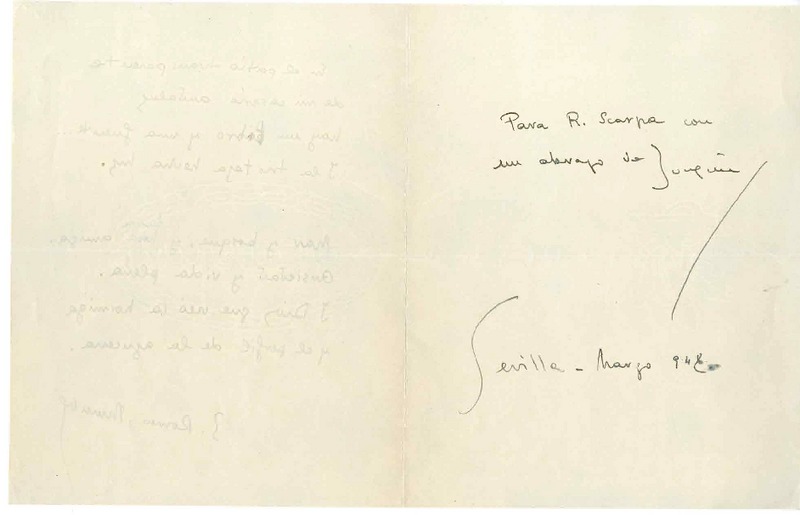 Para R. Scarpa con
un abrazo de Joaquín
Sevilla - Marzo 948
En el patio transparente
de mi casería andaluz
hay un pobre y una fuente...
I la tristeza hecha luz.
Mar y bosque. y mi amiga.
Ansiedad y vida plena.
I Dios que crea la hormiga
y el perfil de la azucena.
J. Romero Murube